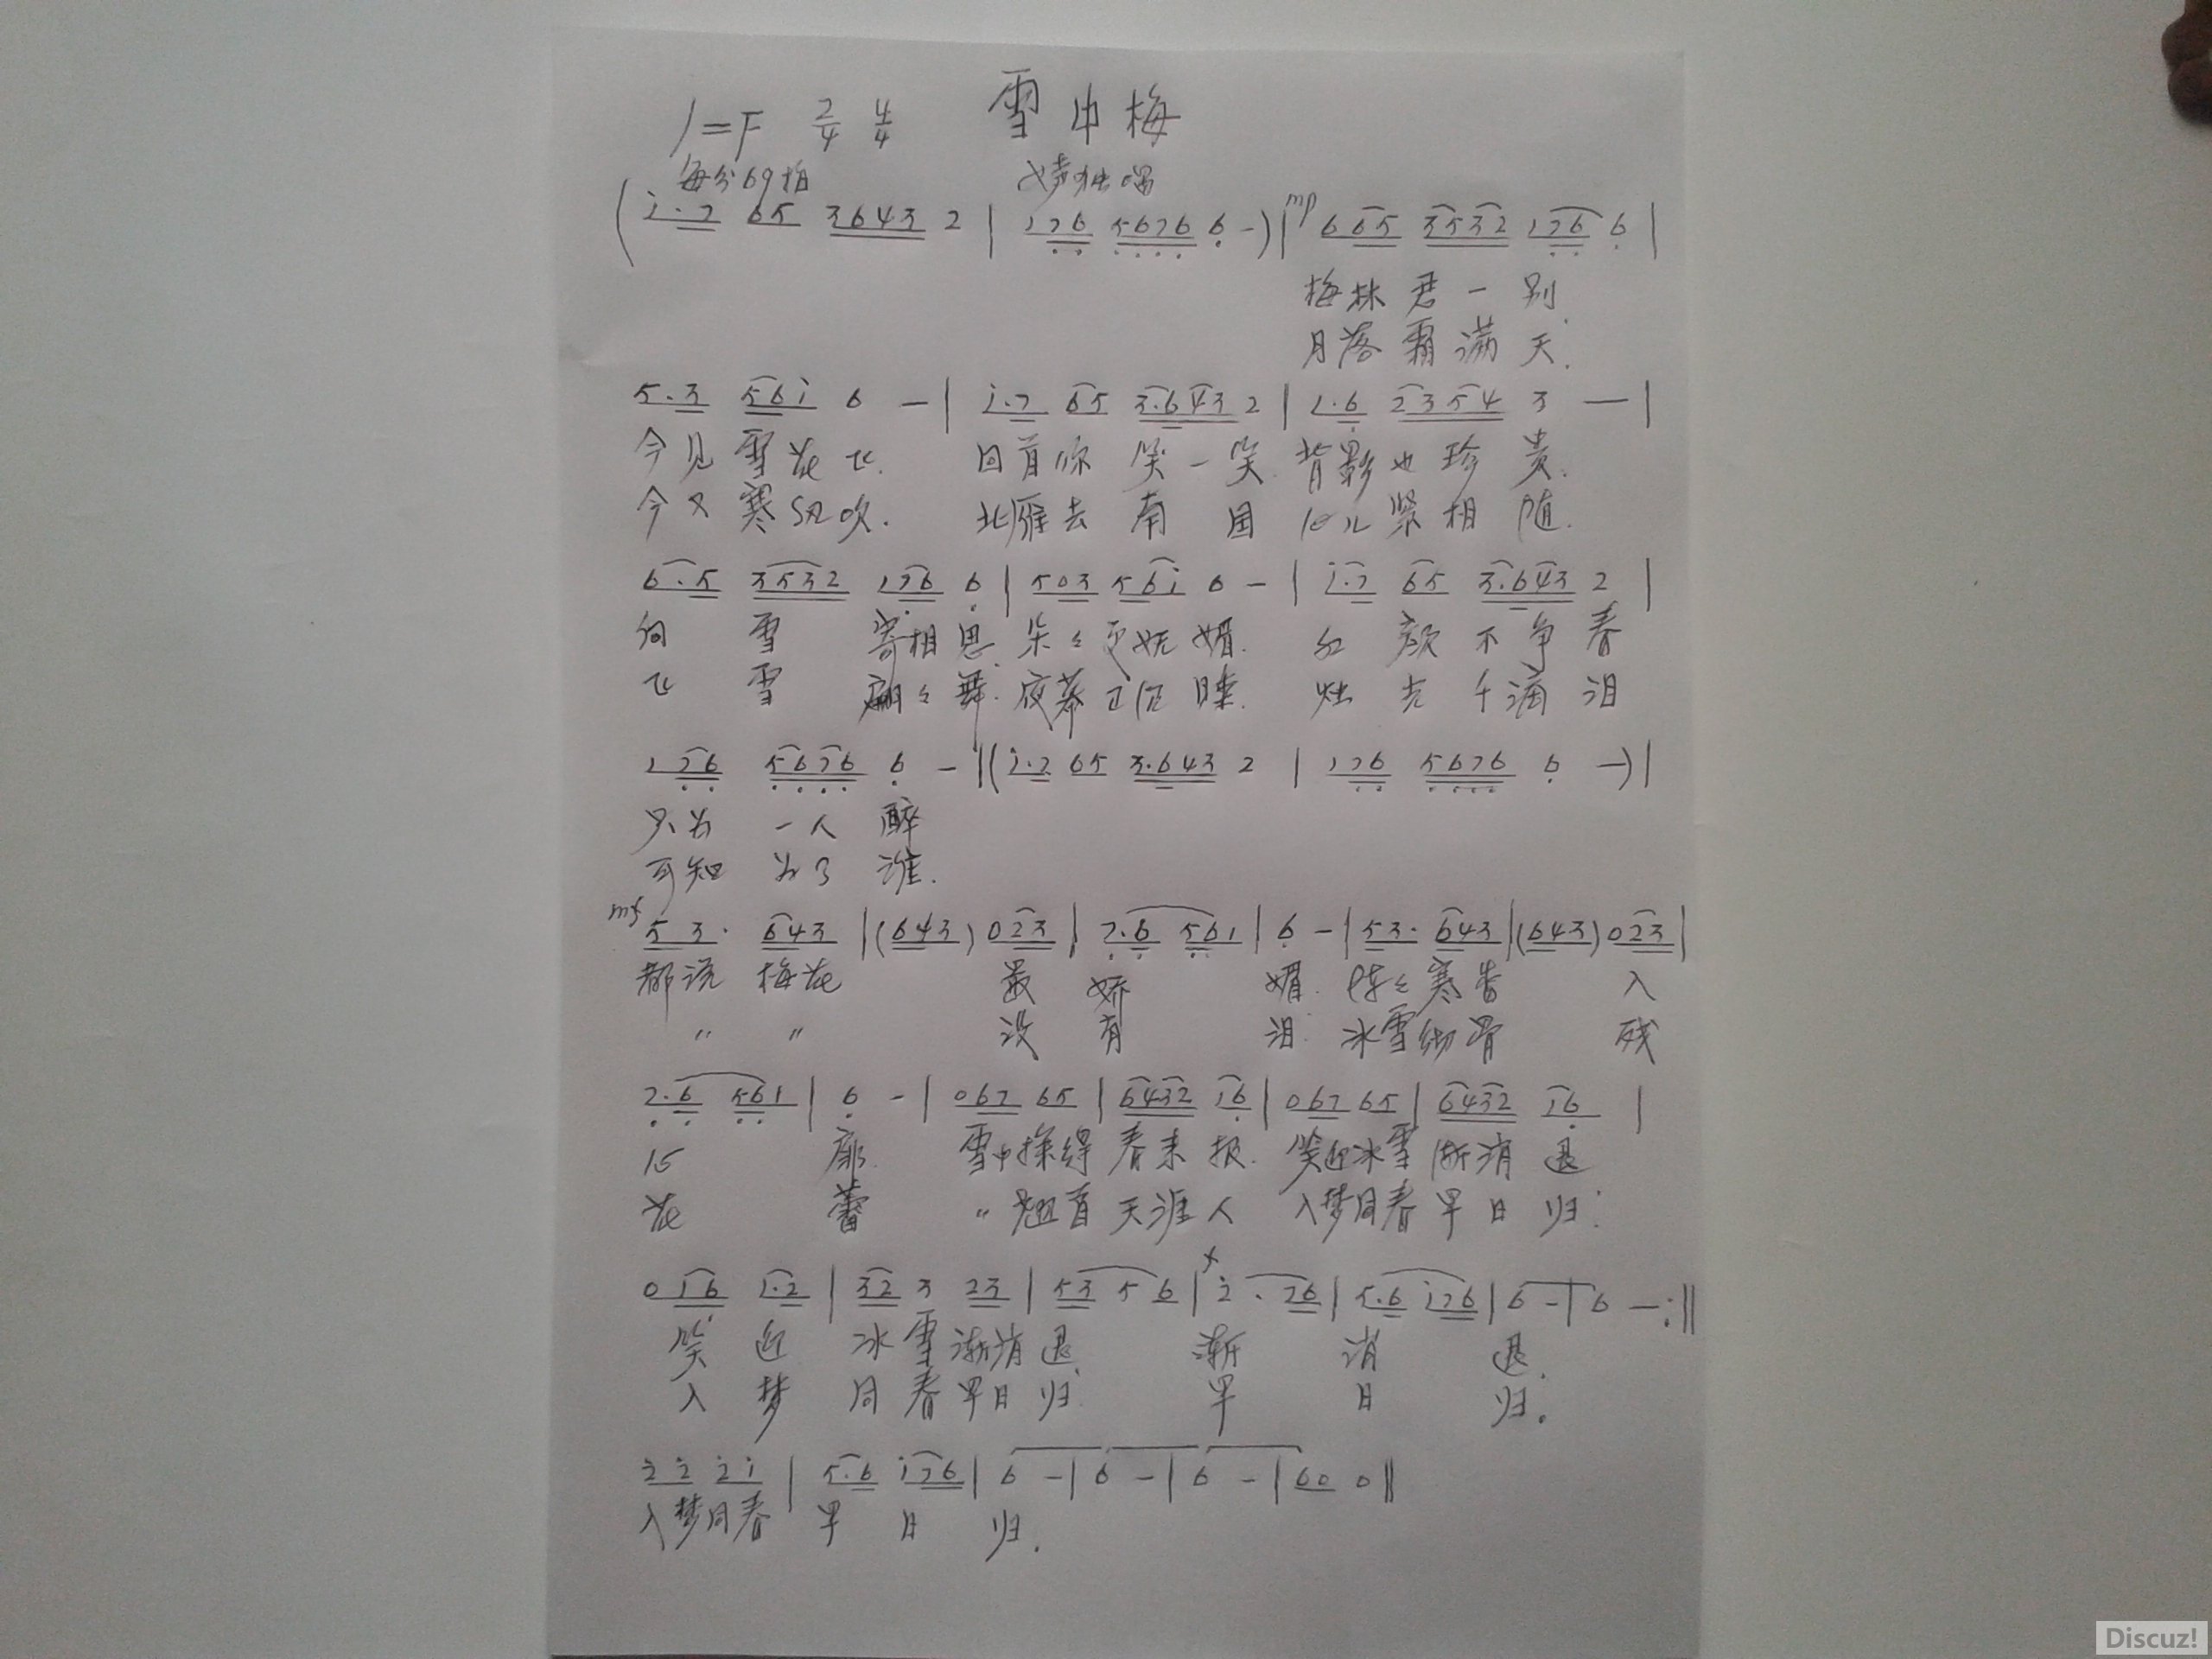 1=F 2/4 4/4 雪中梅
每分69拍 女声独唱
(i.7 65 3643 2 | 176 5676 6 -) | mp 6 65 3532 176 6 |
梅林君一别
月落霜满天.
5.3 56i 6 — | i.7 65 3.643 2 | 1.6 2354 3 — |
今见雪花飞. 回首你笑一笑. 背影也珍贵.
今又寒风吹. 北雁去南国 紧相随.
6.5 3532 176 6 | 503 56i 6 - | i.7 65 3.643 2 |
向雪寄相思 朵々更妩媚. 红颜不争春
飞雪翩々舞. 夜幕正沉睡. 烛光千滴泪
176 5676 6 - | (i.7 65 3.643 2 | 176 5676 6 —) |
只为一人醉
可知为了谁.
mf 5 3. 643 | (643) 023 | 2.6 561 | 6 - | 53. 643 | (643) 023 |
都说梅花 最娇媚. 阵々寒香 入
〃 〃 没有泪. 冰雪彻骨 残
2.6 561 | 6 - | 067 65 | 6432 16 | 067 65 | 6432 16 |
雪中探得春来报. 笑迎冰雪渐消退
花蕾 〃翘首天涯人 入梦同春早日归.
0 16 1.2 | 32 3 23 | 53 5 6 | f 2. 76 | 5.6 i76 | 6 - | 6 — :||
笑迎冰雪渐消退. 渐消退.
入梦同春早日归. 早日归.
2 2 2 i | 5.6 i76 | 6 - | 6 - | 6 - | 60 0 ||
入梦同春早日归.
Discuz!